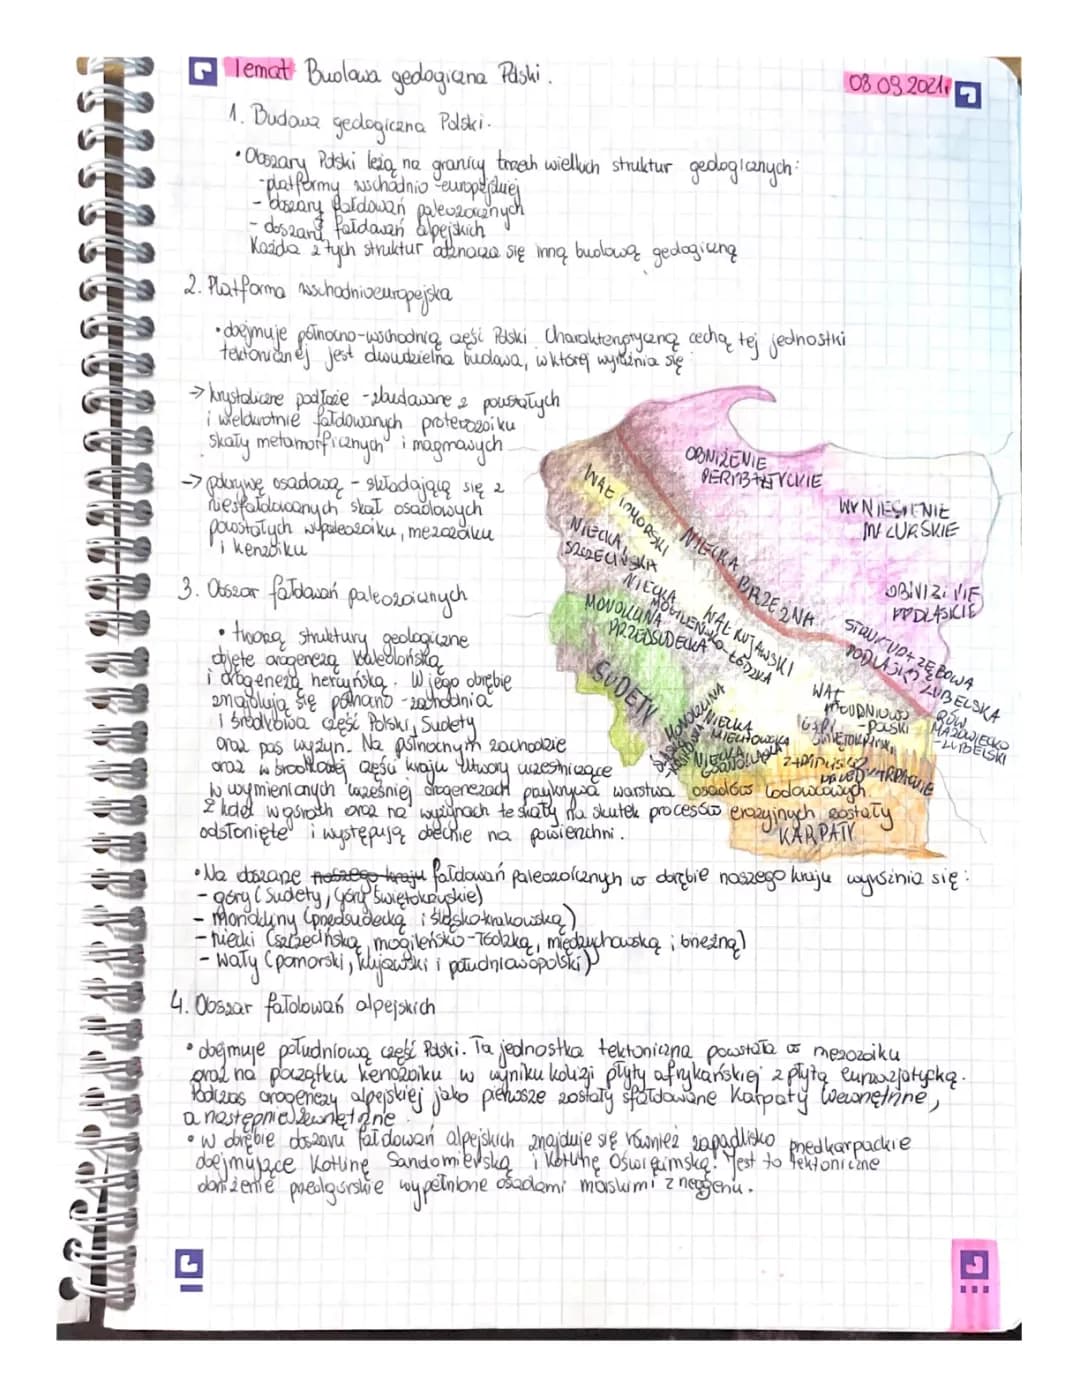 Temat Budowa geologiczna Polski.
03.09.2021r
1. Budowa geologiczna Polski.
• Obszary Polski leżą na granicy trzech wielkich struktur geologicznych:
- platformy wschodnio-europejskiej
- obszary fałdowań paleozoicznych
- obszary fałdowań alpejskich
Każda z tych struktur odznacza się inną budową geologiczną
2. Platforma wschodnioeuropejska
• obejmuje północno-wschodnią część Polski. Charakterystyczną cechą tej jednostki
tektonicznej jest dwudzielna budowa, w której wyróżnia się:
→ krystaliczne podłoże - zbudowane z powstałych
i wielokrotnie fałdowanych proterozoiku
skały metamorficznych i magmowych
→ pokrywę osadową - składającą się z
niesfałdowanych skał osadowych
powstałych w paleozoiku, mezozoiku
i kenzoiku
3. Obszar fałdowań paleozoicznych
• tworzą struktury geologiczne
objęte orogenezą kaledońską
i orogenezą hercyńską. W jego obrębie
znajdują się północno-zachodnia
i środkowa część Polski, Sudety
oraz pas wyżyn. Na północnym zachodzie
oraz w środkowej części kraju utwory uczestniczące
w wymienionych wcześniej orogenezach przykrywa warstwa osadów lodowcowych.
Z kolei w górach oraz na wyżynach te skały na skutek procesów erozyjnych zostały
odsłonięte i występują obecnie na powierzchni.
OBNIŻENIE
PERYBAŁTYCKIE
WYNIESIENIE
MAZURSKIE
OBNIŻENIE
PODLASKIE
WAŁ POMORSKI
NIECKA
SZCZECIŃSKA
NIECKA BRZEŻNA
NIECKA
MOGILEŃSKO-ŁÓDZKA
MONOKLINA
PRZEDSUDECKA
WAŁ KUJAWSKI
STRUKTURA ZRĘBOWA
PODLASKO LUBELSKA
SUDETY
RÓW
MAZOWIECKO
-LUBELSKI
WAŁ
POŁUDNIOWO
-POLSKI
MONOKLINA
NIECKA
MIECHOWSKA
NIECKA
ZAPADLISKO
KARPATY
• Na obszarze naszego kraju fałdowań paleozoicznych w obrębie naszego kraju wyróżnia się:
- góry (Sudety, Góry Świętokrzyskie)
- monokliny (przedsudecką i śląsko-krakowską)
- niecki (szczecińską, mogileńsko-łódzką, miedzychowską i brzeżną)
- wały (pomorski, kujawski i południowopolski)
4. Obszar fałdowań alpejskich
• obejmuje południową część Polski. Ta jednostka tektoniczna powstała w mezozoiku
oraz na początku kenozoiku w wyniku kolizji płyty afrykańskiej z płytą euroazjatycką.
Podczas orogenezy alpejskiej jako pierwsze zostały sfałdowane Karpaty Wewnętrzne,
a następnie Zewnętrzne.
• w obrębie obszaru fałdowań alpejskich znajduje się również zapadlisko przedkarpackie
obejmujące Kotlinę Sandomierską i Kotlinę Oświęcimską. Jest to tektoniczne
obniżenie przedgórskie wypełnione osadami morskimi z neogenu.